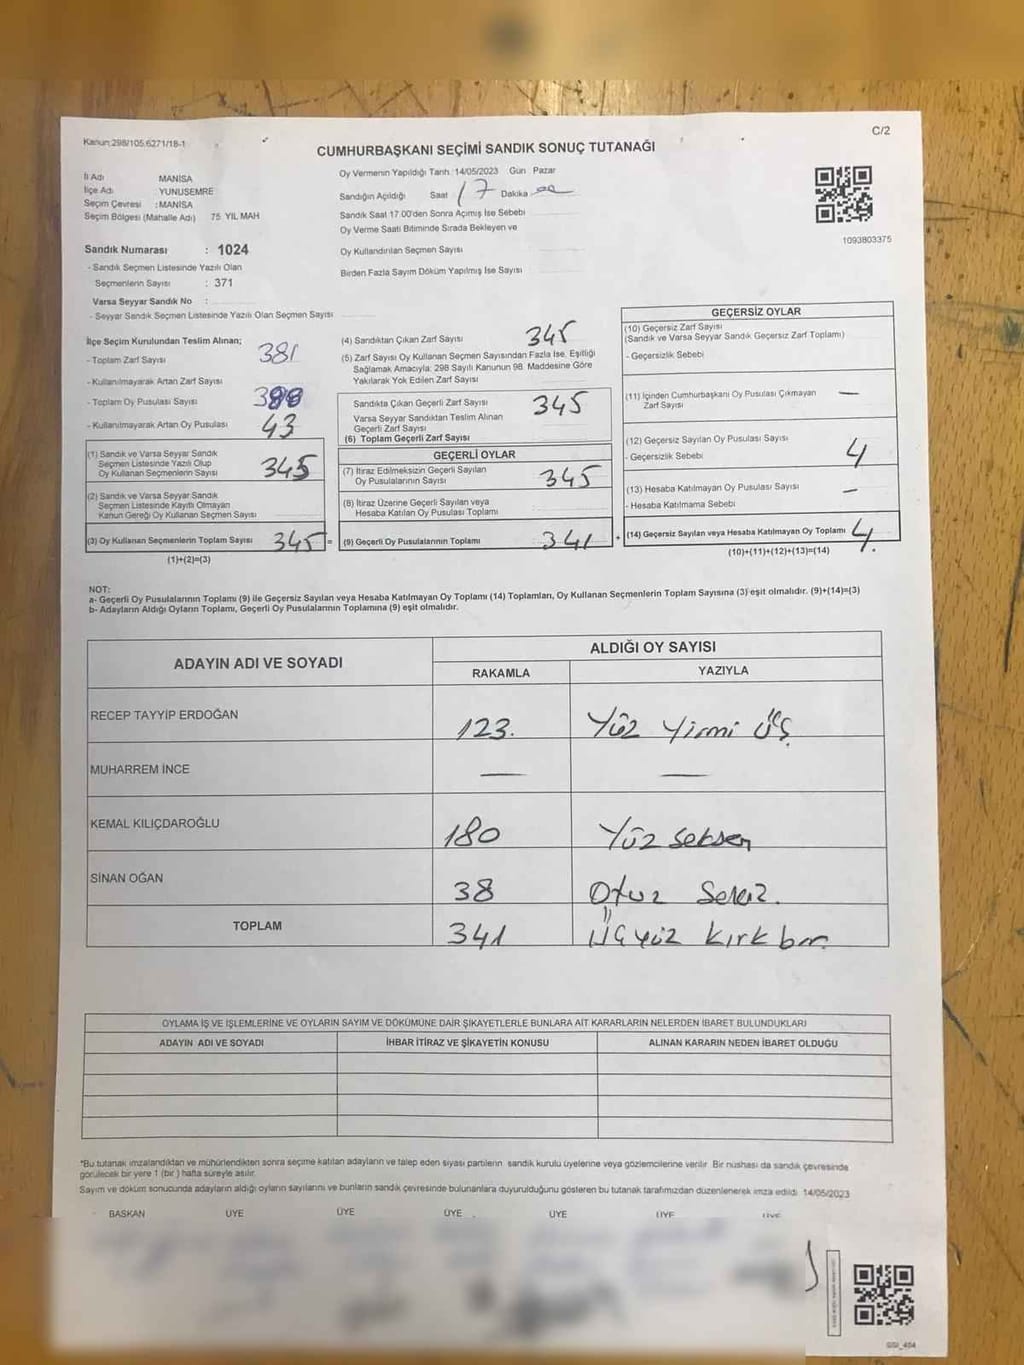 Kanun:298/105.6271/18-1
C/2
CUMHURBAŞKANI SEÇİMİ SANDIK SONUÇ TUTANAĞI
İl Adı MANİSA
İlçe Adı YUNUSEMRE
Seçim Çevresi : MANİSA
Seçim Bölgesi (Mahalle Adı) 75. YIL MAH
Sandık Numarası : 1024
- Sandık Seçmen Listesinde Yazılı Olan
Seçmenlerin Sayısı : 371
Varsa Seyyar Sandık No :
- Seyyar Sandık Seçmen Listesinde Yazılı Olan Seçmen Sayısı
Oy Vermenin Yapıldığı Tarih: 14/05/2023 Gün Pazar
Sandığın Açıldığı Saat 17 Dakika 00
Sandık Saat 17.00'den Sonra Açılmış İse Sebebi
Oy Verme Saati Bitiminde Sırada Bekleyen ve
Oy Kullandırılan Seçmen Sayısı
Birden Fazla Sayım Döküm Yapılmış İse Sayısı
1093803375
İlçe Seçim Kurulundan Teslim Alınan;
- Toplam Zarf Sayısı 381
- Kullanılmayarak Artan Zarf Sayısı
- Toplam Oy Pusulası Sayısı
- Kullanılmayarak Artan Oy Pusulası 43
(1) Sandık ve Varsa Seyyar Sandık
Seçmen Listesinde Yazılı Olup
Oy Kullanan Seçmenlerin Sayısı 345
(2) Sandık ve Varsa Seyyar Sandık
Seçmen Listesinde Kayıtlı Olmayan
Kanun Gereği Oy Kullanan Seçmen Sayısı
(3) Oy Kullanan Seçmenlerin Toplam Sayısı 345 =
(1)+(2)=(3)
(4) Sandıktan Çıkan Zarf Sayısı 345
(5) Zarf Sayısı Oy Kullanan Seçmen Sayısından Fazla İse, Eşitliği
Sağlamak Amacıyla; 298 Sayılı Kanunun 98. Maddesine Göre
Yakılarak Yok Edilen Zarf Sayısı
Sandıkta Çıkan Geçerli Zarf Sayısı 345
Varsa Seyyar Sandıktan Teslim Alınan
Geçerli Zarf Sayısı
(6) Toplam Geçerli Zarf Sayısı
GEÇERLİ OYLAR
(7) İtiraz Edilmeksizin Geçerli Sayılan
Oy Pusulalarının Sayısı 345
(8) İtiraz Üzerine Geçerli Sayılan veya
Hesaba Katılan Oy Pusulası Toplamı
(9) Geçerli Oy Pusulalarının Toplamı 341 +
GEÇERSİZ OYLAR
(10) Geçersiz Zarf Sayısı
(Sandık ve Varsa Seyyar Sandık Geçersiz Zarf Toplamı)
- Geçersizlik Sebebi
(11) İçinden Cumhurbaşkanı Oy Pusulası Çıkmayan
Zarf Sayısı —
(12) Geçersiz Sayılan Oy Pusulası Sayısı 4
- Geçersizlik Sebebi
(13) Hesaba Katılmayan Oy Pusulası Sayısı —
- Hesaba Katılmama Sebebi
(14) Geçersiz Sayılan veya Hesaba Katılmayan Oy Toplamı 4.
(10)+(11)+(12)+(13)=(14)
NOT:
a- Geçerli Oy Pusulalarının Toplamı (9) ile Geçersiz Sayılan veya Hesaba Katılmayan Oy Toplamı (14) Toplamları, Oy Kullanan Seçmenlerin Toplam Sayısına (3) eşit olmalıdır. (9)+(14)=(3)
b- Adayların Aldığı Oyların Toplamı, Geçerli Oy Pusulalarının Toplamına (9) eşit olmalıdır.
ADAYIN ADI VE SOYADI ALDIĞI OY SAYISI
RAKAMLA YAZIYLA
RECEP TAYYİP ERDOĞAN 123. Yüz Yirmi Üç
MUHARREM İNCE — —
KEMAL KILIÇDAROĞLU 180 Yüz Seksen
SİNAN OĞAN 38 Otuz Sekiz.
TOPLAM 341 Üçyüz kırk bir.
OYLAMA İŞ VE İŞLEMLERİNE VE OYLARIN SAYIM VE DÖKÜMÜNE DAİR ŞİKAYETLERLE BUNLARA AİT KARARLARIN NELERDEN İBARET BULUNDUKLARI
ADAYIN ADI VE SOYADI İHBAR İTİRAZ VE ŞİKAYETİN KONUSU ALINAN KARARIN NEDEN İBARET OLDUĞU
*Bu tutanak imzalandıktan ve mühürlendikten sonra seçime katılan adayların ve talep eden siyasi partilerin sandık kurulu üyelerine veya gözlemcilerine verilir. Bir nüshası da sandık çevresinde
görülecek bir yere 1 (bir) hafta süreyle asılır.
Sayım ve döküm sonucunda adayların aldığı oyların sayılarını ve bunların sandık çevresinde bulunanlara duyurulduğunu gösteren bu tutanak tarafımızdan düzenlenerek imza edildi. 14/05/2023
BAŞKAN ÜYE ÜYE ÜYE ÜYE ÜYE ÜYE